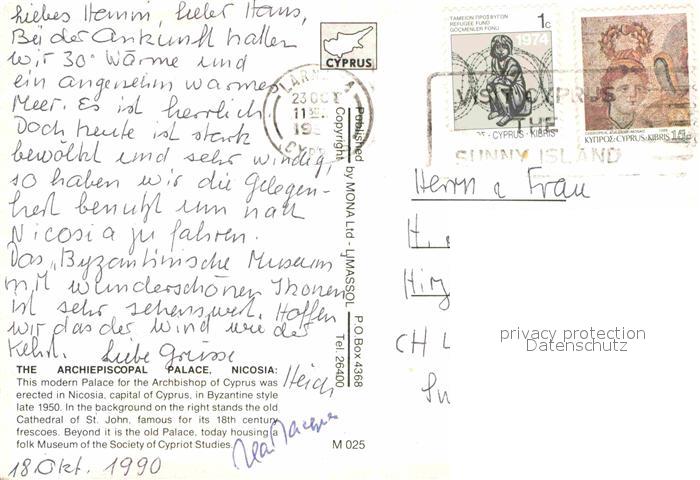 liebes Hemmi, lieber Hans,
Bei der Ankunft hatten
wir 30° Wärme und
ein angenehm warmes
Meer. Es ist herrlich.
Doch heute ist stark
bewölkt und sehr windig,
so haben wir die Gelegen-
heit benutzt um nach
Nicosia zu fahren.
Das "Byzantinische Museum
mit wunderschönen Ikonen
ist sehr sehenswert. Hoffen
wir das der Wind wieder
kehrt. Liebe Grüsse
THE ARCHIEPISCOPAL PALACE, NICOSIA:
This modern Palace for the Archbishop of Cyprus was
erected in Nicosia, capital of Cyprus, in Byzantine style
late 1950. In the background on the right stands the old
Cathedral of St. John, famous for its 18th century
frescoes. Beyond it is the old Palace, today housing a
folk Museum of the Society of Cypriot Studies.
M 025
18 Okt. 1990
CYPRUS
LARNACA
23 OCT
11 30
19
CYPRUS
Published by MONA Ltd - LIMASSOL P.O Box 4368
Copyright Tel. 26400
ΤΑΜΕΙΟΝ ΠΡΟΣΦΥΓΩΝ
REFUGEE FUND
GÖÇMENLER FONU
1c
1974
CYPRUS-KIBRIS
ΚΥΠΡΟΣ·CYPRUS·KIBRIS 15c
VISIT CYPRUS
THE
SUNNY ISLAND
Herrn & Frau
H.
Hirz
CH L
privacy protection
Datenschutz